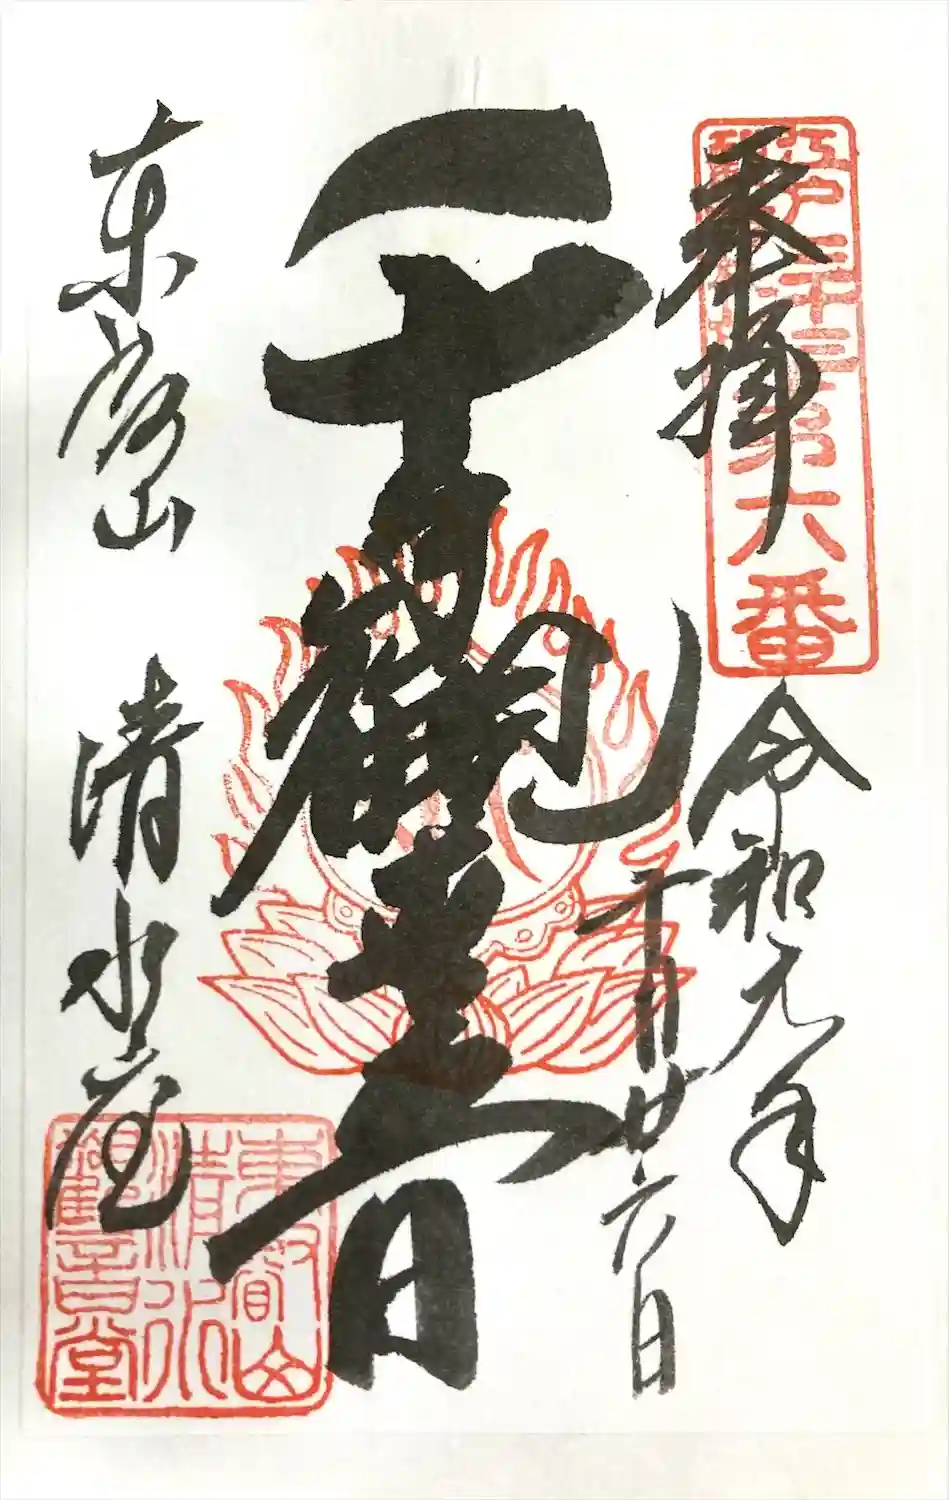 江戸三十三
第六番
奉拝
令和元年
十月廿六日
千手觀世音
東叡山 清水堂
東叡山
清水
觀音堂